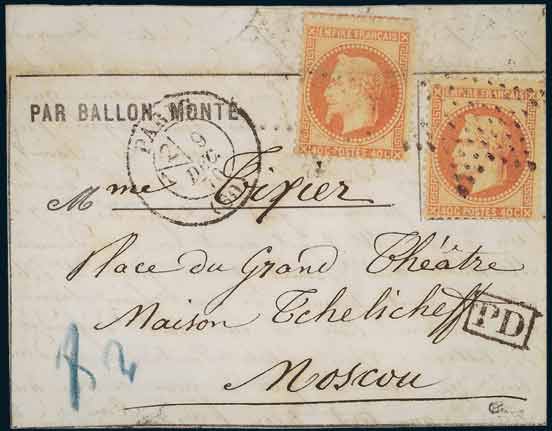 EMPIRE FRANÇAIS
40C·POSTES·40C
EMPIRE FRANÇAIS
40C·POSTES·40C
PAR BALLON MONTÉ
PARIS
9
DÉC
(60)
Mme Tixier
Place du Grand Théâtre
Maison Tchelicheff
PD
Moscou